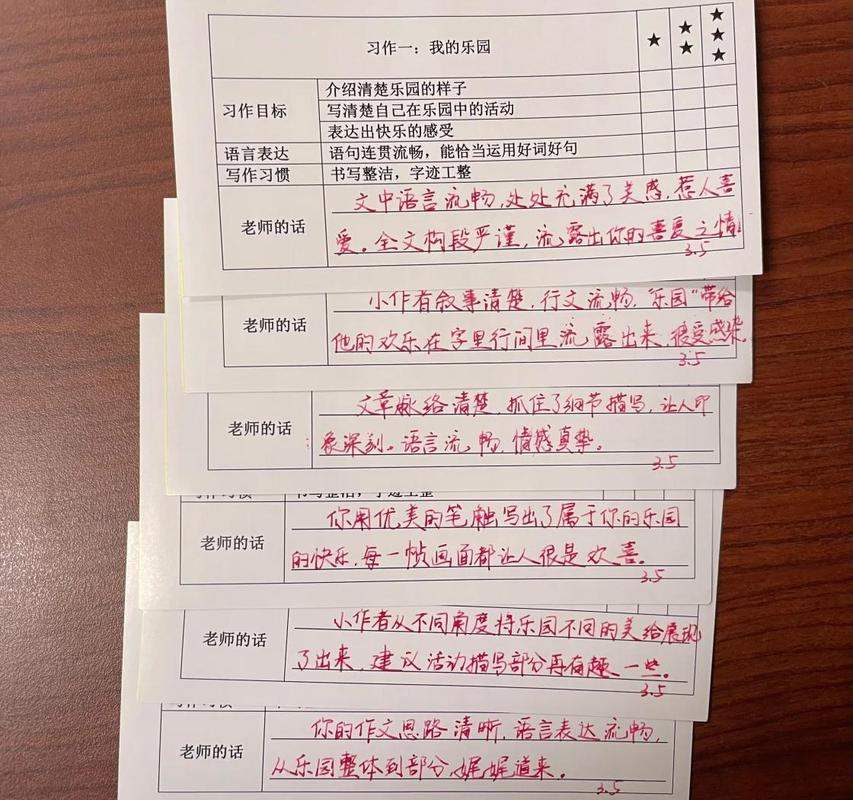 习作一：我的乐园
★ ★★ ★★★
习作目标
介绍清楚乐园的样子
写清楚自己在乐园中的活动
表达出快乐的感受
语言表达 语句连贯流畅，能恰当运用好词好句
写作习惯 书写整洁，字迹工整
老师的话
文中语言流畅，处处充满了美感，惹人喜
爱。全文构段严谨，流露出你的喜爱之情
3.5
老师的话
小作者叙事清楚，行文流畅，"乐园"带给
他的欢乐在字里行间里流露出来，很受感染。
3.5
老师的话
文章脉络清楚，抓住了细节描写，让人印
象深刻。语言流畅，情感真挚。
3.5
写作习惯 书写整洁，字迹工整
老师的话
你用优美的笔触写出了属于你的乐园
的快乐，每一帧画面都让人很是欢喜。
3.5
老师的话
小作者从不同角度将乐园不同的美给展现
了出来，建议活动描写部分再有趣一些。
3.5
老师的话
你的作文思路清晰，语言表达流畅，
从乐园整体到部分，娓娓道来。
3.5